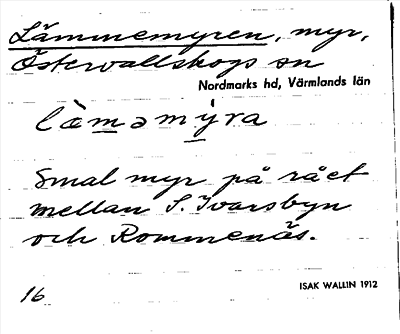 Lämmemyren, myr,
Östervallskogs sn
Nordmarks hd, Värmlands län
lòməmýra
Smal myr på rået
mellan S. Ivarsbyn
och Rommenäs.
16
ISAK WALLIN 1912